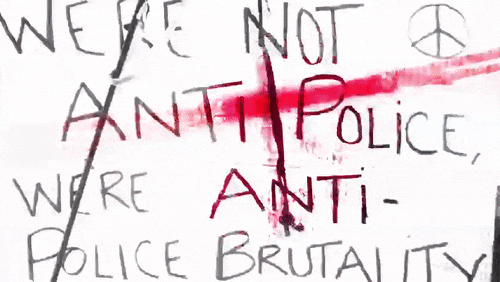 WERE NOT
ANTI POLICE,
WERE ANTI-
POLICE BRUTALITY